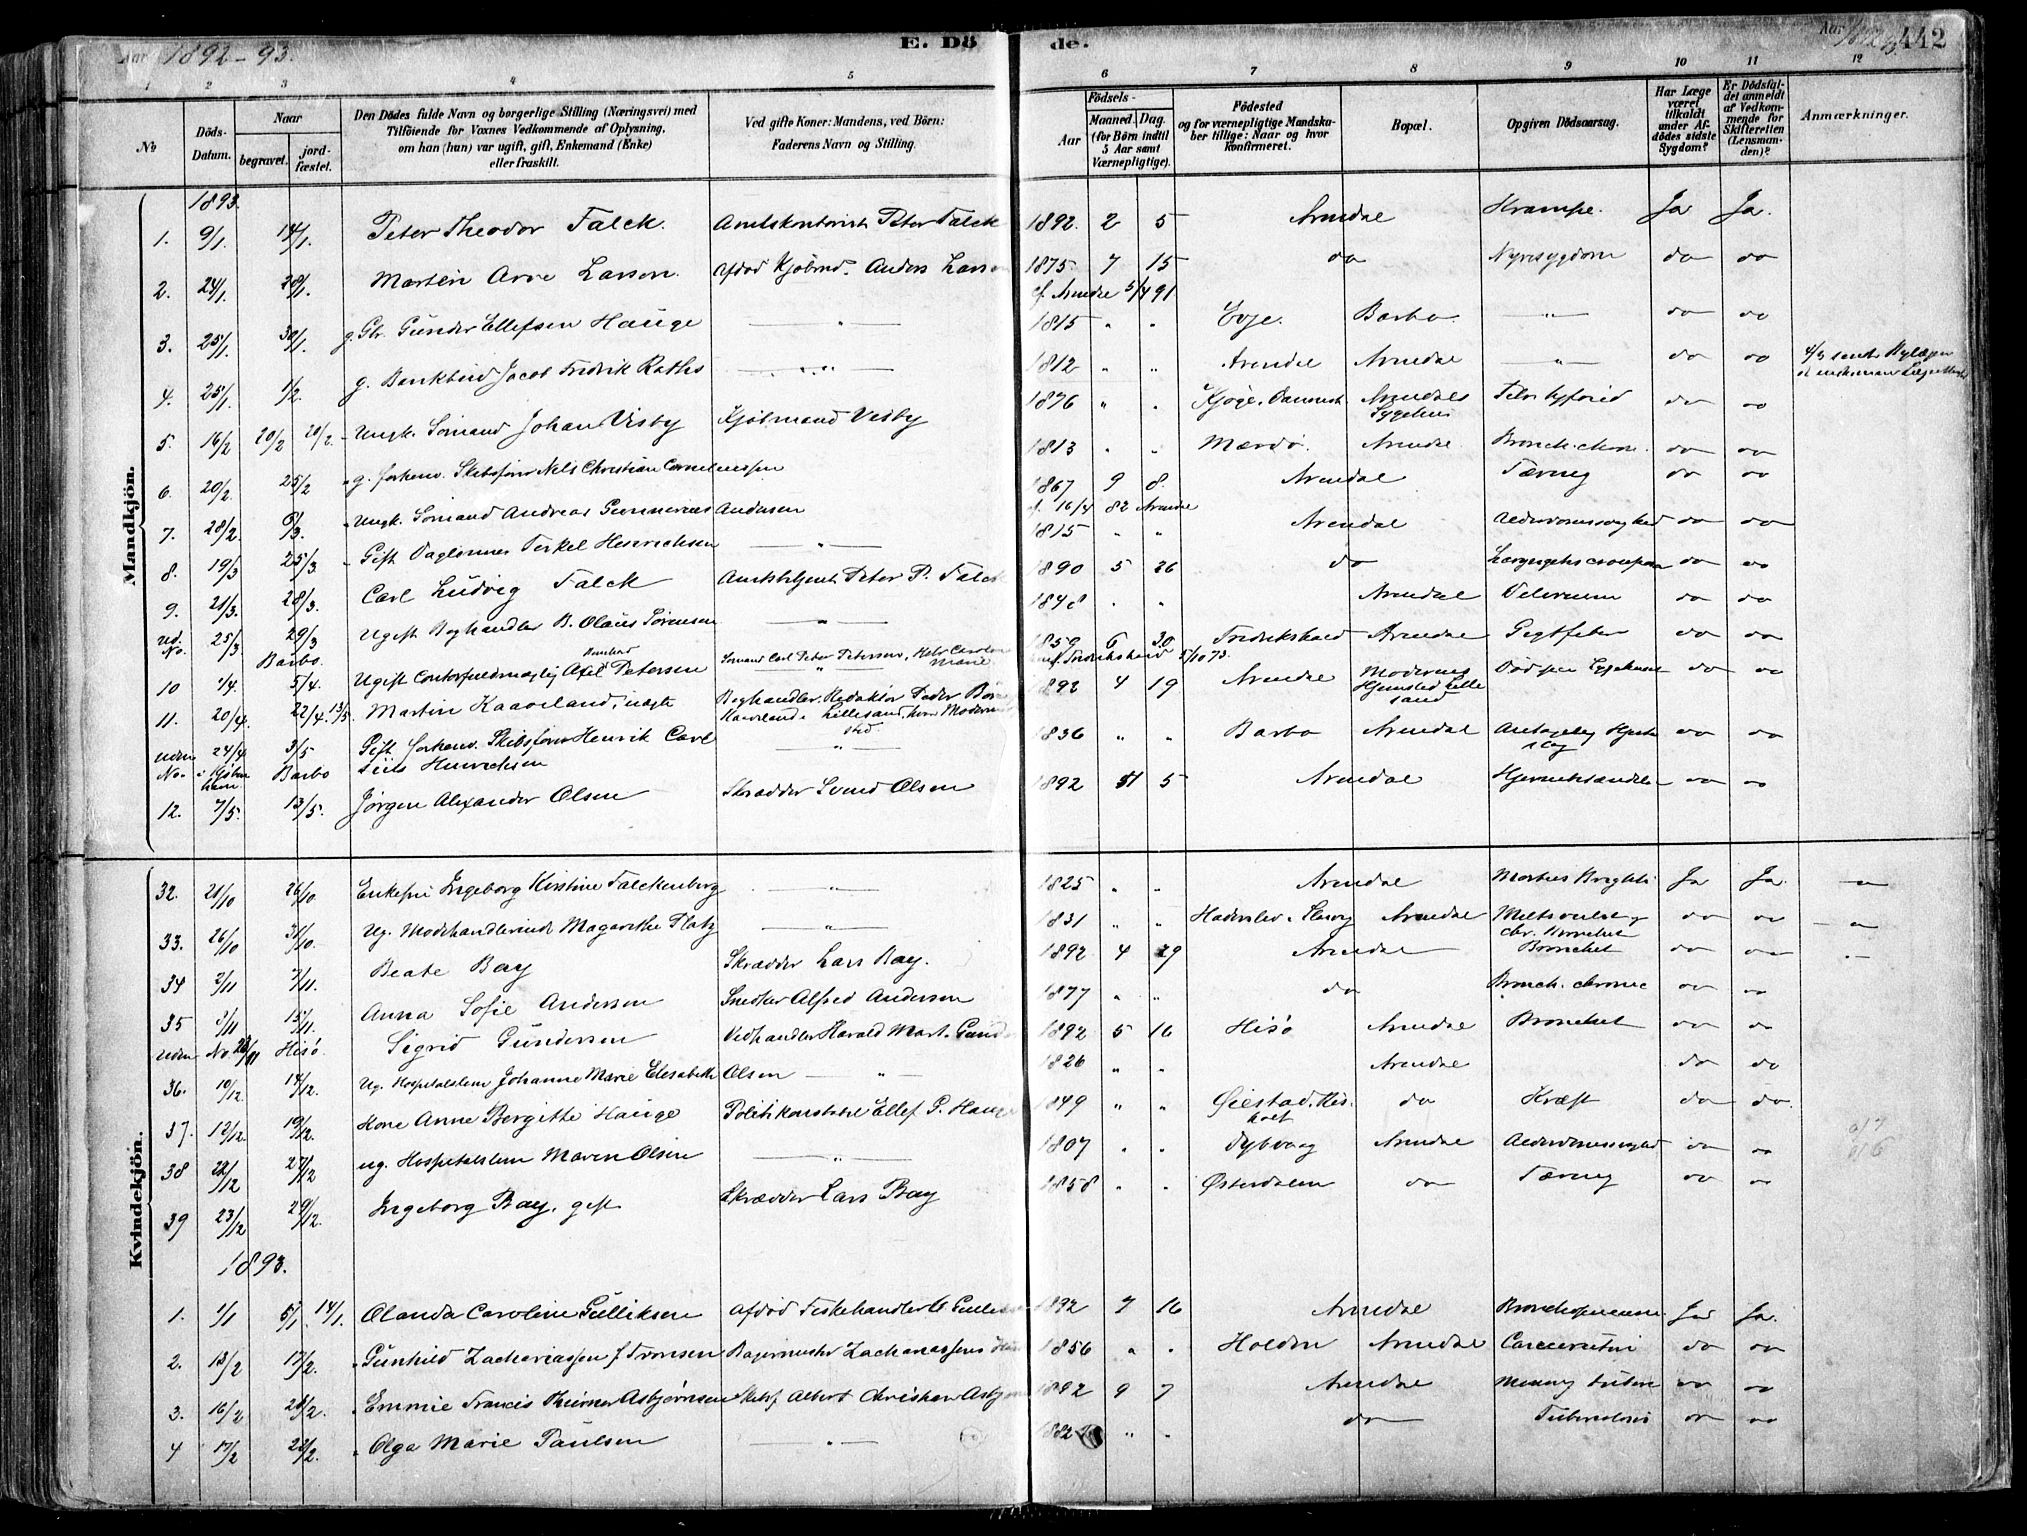 Aar 1892-93. E. Dö de. Aar 442
1 2 3 4 5 6 7 8 9 10 11 12
No
Döds-Datum.
Naar
begravet. jord-fæstet.
Den Dödes fulde Navn og borgerlige Stilling (Næringsvei) med
Tilföiende for Voxnes Vedkommende af Oplysning,
om han (hun) var ugift, gift, Enkemand (Enke)
eller fraskilt.
Ved gifte Koner: Mandens, ved Börn:
Faderens Navn og Stilling.
Födsels-
Aar Maaned. Dag.
(for Börn indtil
5 Aar samt
Værnepligtige).
Födested
og for værnepligtige Mandska-
ber tillige: Naar og hvor
konfirmeret.
Bopæl.
Opgiven Dödsaarsag.
Har Læge
været
tilkaldt
under Af-
dödes sidste
Sygdom?
Er Dödsfal-
det anmeldt
af Vedkom-
mende for
Skifteretten
(Lensman-
den)?
Anmærkninger.
Mandkjön.
1893.
1. 9/1. 14/1. Peter Theodor Falck. Amtskontorist Peter Falck 1892. 2 5 Arendal Krampe. Ja Ja.
2. 24/1. 28/1. Martin Arne Larsen. Afdød Kjøbmd. Anders Larsen 1875. 7 15 do Nyresygdom do do
cf. Arendal 5/4 91
3. 25/1. 30/1. g. Gbr. Gunder Ellefsen Hauge — " — 1815 " " Evje. Barbo. — " — do do
4. 25/1. 1/2. g. Bankbud Jacob Fredrik Raths — " — 1812 " " Arendal Arendal — " — do do
5. 16/2 20/2 20/2. Ungk. Sømand Johan Visby Kjøbmand Visby 1876 " " Kjøge, Danmark Arendals Sygehus Febr. tyfoid do do
6. 20/2. 25/2 g. forhenv. Skibsfører Nels Christian Corneliussen 1813 " " Mærdø. Arendal. Bronch. chron. do do
7. 28/2. 6/3. Ungk. Sømand Andreas Gunnerius Andersen 1867 9 8. Arendal Tæring do do
cf. 16/4 82 Arendal
8. 19/3 25/3. Gift Daglønner Terkel Henrichsen — " — 1815 " " Arendal Alderdomssvaghed do do
9. 21/3. 28/3. Carl Ludvig Falck Amtsbetjent Peter P. Falck 1890 5 26 do do do
ud. No. 25/3 29/3 Barbo. Ugift Boghandler B. Olaus Sørensen — " — 1848 " " Arendal Delirium do do
10 1/4. 5/4. Ugift Contorfuldmægtig Axel Petersen Sømand Carl Peter Petersen, 1859 6 30. Fredrikshald Arendal Gigtfeber do do
Fredrikshald 5/10 73.
11. 20/4. 22/4. 13/5. Martin Kaaveland, uægte Boghandler, Redaktør Peder 1892 4 19 Arendal Moderens Hjemsted Lillesand do do
uden No. 24/4 i Kjøbenhavn 3/5 Barbo Gift forhenv. Skibsfører Henrik Carl Henrichsen — " — 1836 " " Barbo Arendal Hjerteslag do do
12. 7/5. 13/5. Jørgen Alexander Olsen Skrædder Svend Olsen 1892 5 Arendal do do
Kvindekjön.
32. 21/10 26/10. Enkefru Ingeborg Kirstine Falckenberg — " — 1825 " " Arendal Morbus Brightii Ja Ja. — " —
33. 26/10 31/10. Ug. Modehandlerinde Magarethe Platz — " — 1831 " " Haderslev, Slesvig Arendal do do — " —
34 2/11 7/11. Beate Bay Skrædder Lars Bay. 1892 4 29 Arendal Bronchit do do
35 /11 15/11. Anna Sofie Andersen Snedker Alfred Andersen 1877 " " do Bronch. chronic do do
uden No. /11 Hisø. Sigrid Gundersen Vedhandler Harald Mart. Gunder 1892 5 16 Hisø Arendal Bronchit do do
36. 10/12 14/12. Ug. Hospitalslem Johanne Marie Elisabeth Olsen — " — 1826 " " Arendal do do
37. 12/12 19/12. Kone Anne Bergitte Hauge Politikonstabel Ellef G. Hauge 1849 " " Øiestad, do Kræft do do.
38 22/12 27/12 ug. Hospitalslem Maren Olsen — " — 1807 " " Dybvaag Arendal Alderdomssvaghed do do
39 23/12 29/12. Ingeborg Bay, gift Skrædder Lars Bay 1858 " " Østerdalen do Tæring do do
1893.
1. 1/1 5/1. 14/1. Olanda Caroline Gulliksen Afdød Fiskehandler G. 1892 7 16 Arendal Ja Ja.
2. 13/2 17/2. Gunhild Zachariassen f. Tronsen Bagermester Zachariassens 1856 " " Holden Arendal do do
3. 16/2 /2. Emmie Francis Asbjørnsen Skibsf. Albert Christian Asbjørn 1892 9 7 Arendal do do
4 17/2 23/2. Olga Marie Paulsen — " — 1882 " " do Tuberculosis do do